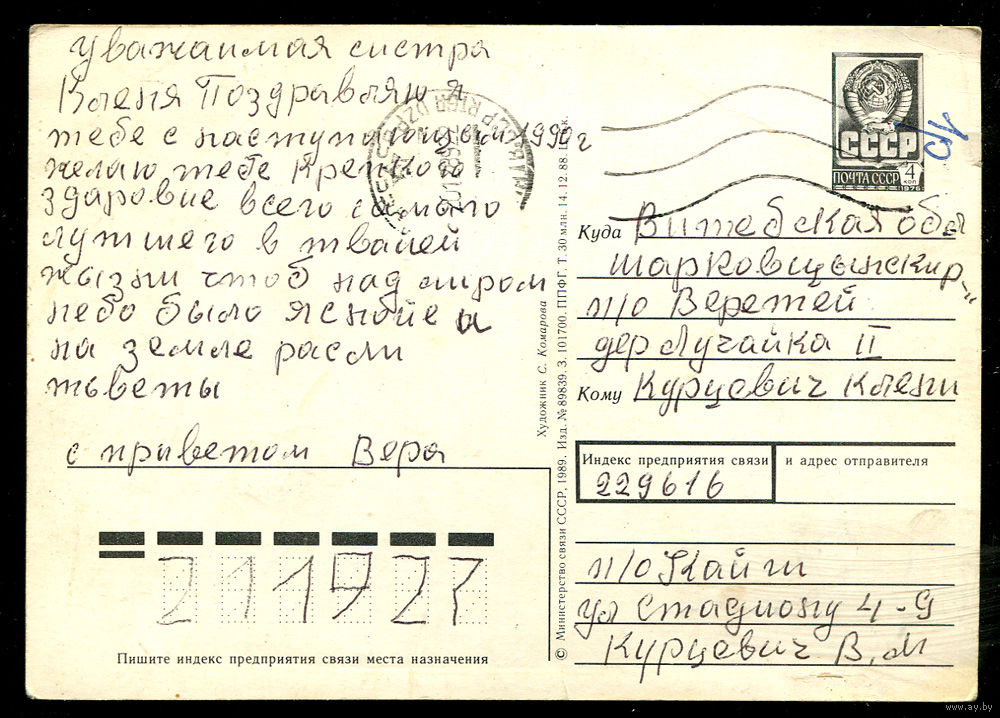 уважаимая систра
Кленя Поздравляю я
тебе с наступающем 1990г
желаю тебе крепкого
здаровие всего самого
лутшего в твайей
жызни чтоб над миром
небо было ясное и
на земле расли
тьветы
с приветом Вера
СССР
ПОЧТА СССР
4 коп
1976
Куда Витебская обл
шарковщынский р-н
п/о Веретей
дер Лучайка II
Кому Курцевич Клени
Индекс предприятия связи и адрес отправителя
229616
п/о Кайги
ул Стадиону 4-9
Курцевич В,М
211927
Пишите индекс предприятия связи места назначения
© Министерство связи СССР, 1989. Изд. № 89839. З. 101700. ППФГ. Т. 30 млн. 14.12.88. Ц. к.
Художник С. Комарова
www.ay.by